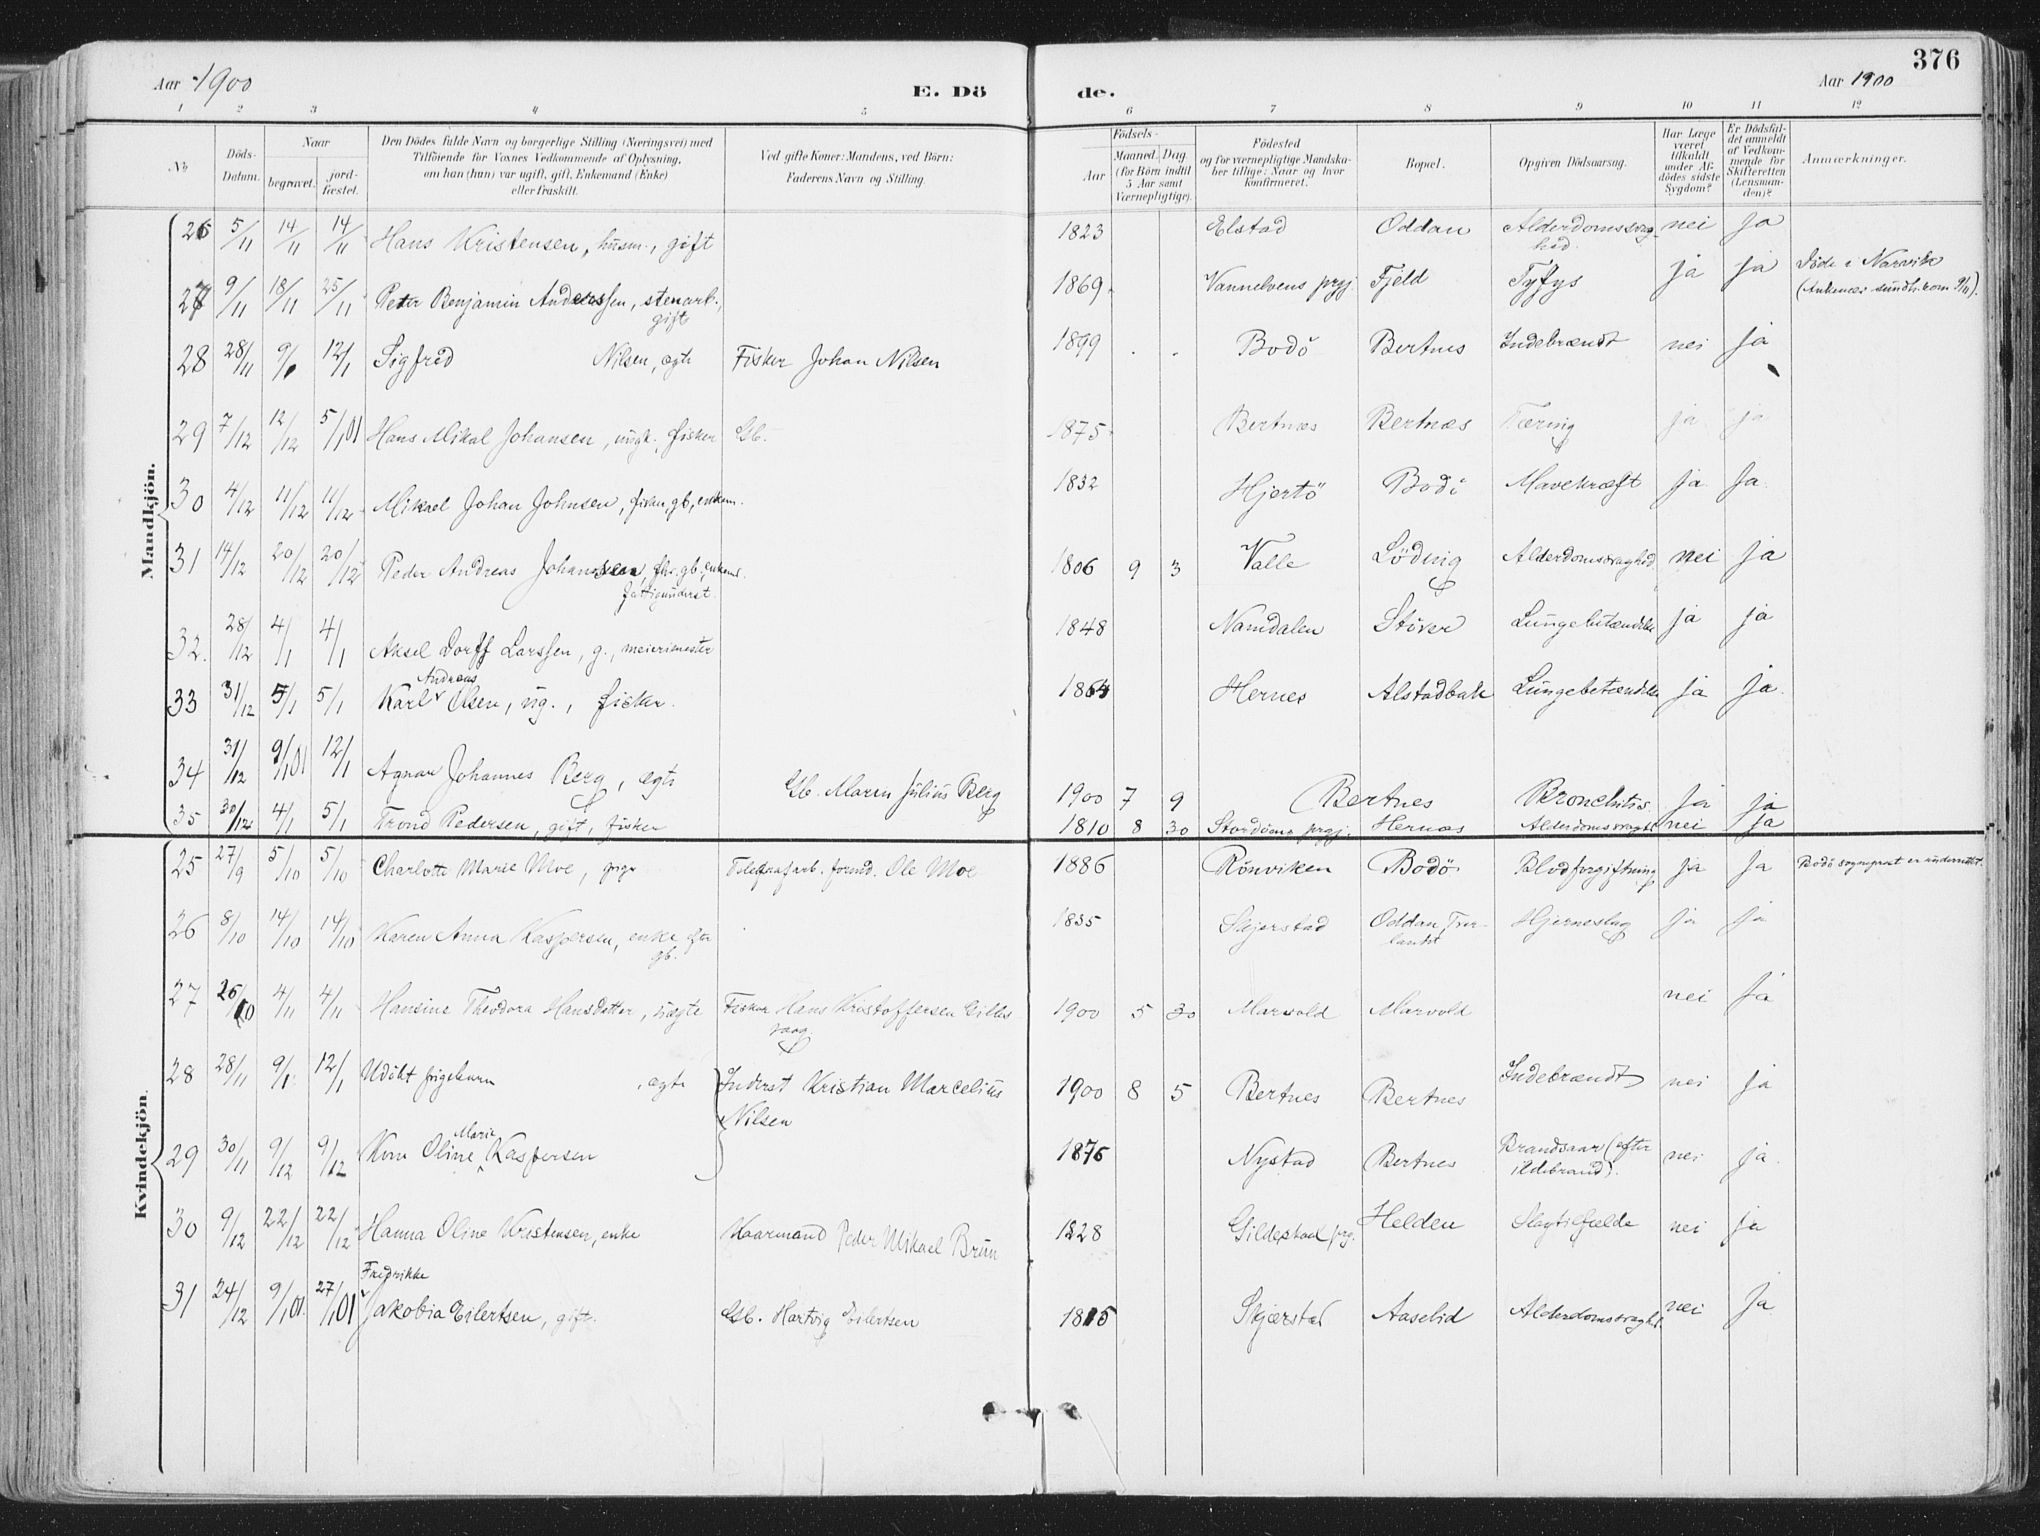 376
Aar 1900 E. Dö de. Aar 1900
1 2 3 4 5 6 7 8 9 10 11 12
No Döds-Datum. Naar begravet. jord-fæstet. Den Dödes fulde Navn og borgerlige Stilling (Næringsvei) med Tilföiende for Voxnes Vedkommende af Oplysning, om han (hun) var ugift, gift, Enkemand (Enke) eller fraskilt. Ved gifte Koner: Mandens, ved Börn: Faderens Navn og Stilling. Födsels- Aar Maaned. Dag. (for Börn indtil 5 Aar samt Værnepligtige). Födested og for værnepligtige Mandskaber tillige: Naar og hvor konfirmeret. Bopæl. Opgiven Dödsaarsag. Har Læge været tilkaldt under Afdödes sidste Sygdom? Er Dödsfaldet anmeldt af Vedkommende for Skifteretten (Lensmanden)? Anmærkninger.
Mandkjön.
26 5/11 14/11 14/11 Hans Kristensen, husm., gift 1823 Elstad Oddan Alderdomssvaghed nei ja
27 9/11 18/11 25/11 Peter Benjamin Anderssen, stenarb., gift 1869 Vannelvens prgj. Fjeld Tyfys ja ja Döde i Narvik (Ankenæs sundh.kom 9/11).
28 28/11 9/1 12/1 Sigfred Nilsen, ægte Fisker Johan Nilsen 1899 . . Bodö Bertnes Indebrændt nei ja
29 7/12 12/12 5/1 01 Hans Mikal Johansen, ungk., fisker Gb. 1875 Bertnæs Bertnæs Tæring ja ja
30 4/12 11/12 11/12 Mikael Johan Johnsen, fisker, gb., enkem. 1832 Hjertö Bodö Mavekræft ja ja
31 14/12 20/12 20/12 Peder Andreas Johanssen, fhv. gb., enkem. fattigunderst. 1806 9 3 Valle Löding Alderdomssvaghed. nei ja
32. 28/12 4/1 4/1 Aksel Dorff Larssen, g., meierimester 1848 Namdalen Stöver Lungebetændelse ja ja
33 31/12 5/1 5/1 Karl Andreas Olsen, ug., fisker. 1864 Hernes Alstadbak Lungebetændelse ja ja.
34 31/12 9/1 01 12/1 Agnar Johannes Berg, ægte Gb. Maren Julius Berg 1900 7 9 Bertnes Bronchitis ja ja
35 30/12 4/1 5/1 Trond Pedersen, gift, fisker 1810 8 30 Stordöens prgj. Hernæs Alderdomssvaghed nei ja
Kvindekjön.
25 27/9 5/10 5/10 Charlotte Marie Moe, pige Telegrafarb. formd. Ole Moe 1886 Rönviken Bodö Blodforgiftning ja ja Bodö sogneprest er underrettet.
26 8/10 14/10 14/10 Karen Anna Kaspersen, enke efter gb. 1835 Skjerstad Oddan, Tverlandet Hjerneslag ja ja
27 26/10 4/11 4/11 Hansine Theodora Hansdatter, uægte Fisker Hans Kristoffersen Gillesvaag 1900 5 30 Marvold Marvold nei ja
28 28/11 9/1 12/1 Udöbt pigebarn, ægte Inderst Kristian Marcelius Nilsen 1900 8 5 Bertnes Bertnes Indebrændt nei ja
29 30/11 9/12 9/12 Kone Oline Marie Kaspersen 1876 Nystad Bertnes Brandsaar (efter ildebrand). nei ja.
30 9/12 22/12 22/12 Hanna Oline Kristensen, enke Kaarmand Peder Mikael Brun 1828 Gildeskaal prg. Helden Slagtilfælde nei ja
31 24/12 9/1 01. 27/1 01 Fredrikke Jakobia Eilertsen, gift. Gb. Hartvig Eilertsen 1815 Skjerstad Aaselid Alderdomssvaghed. nei ja